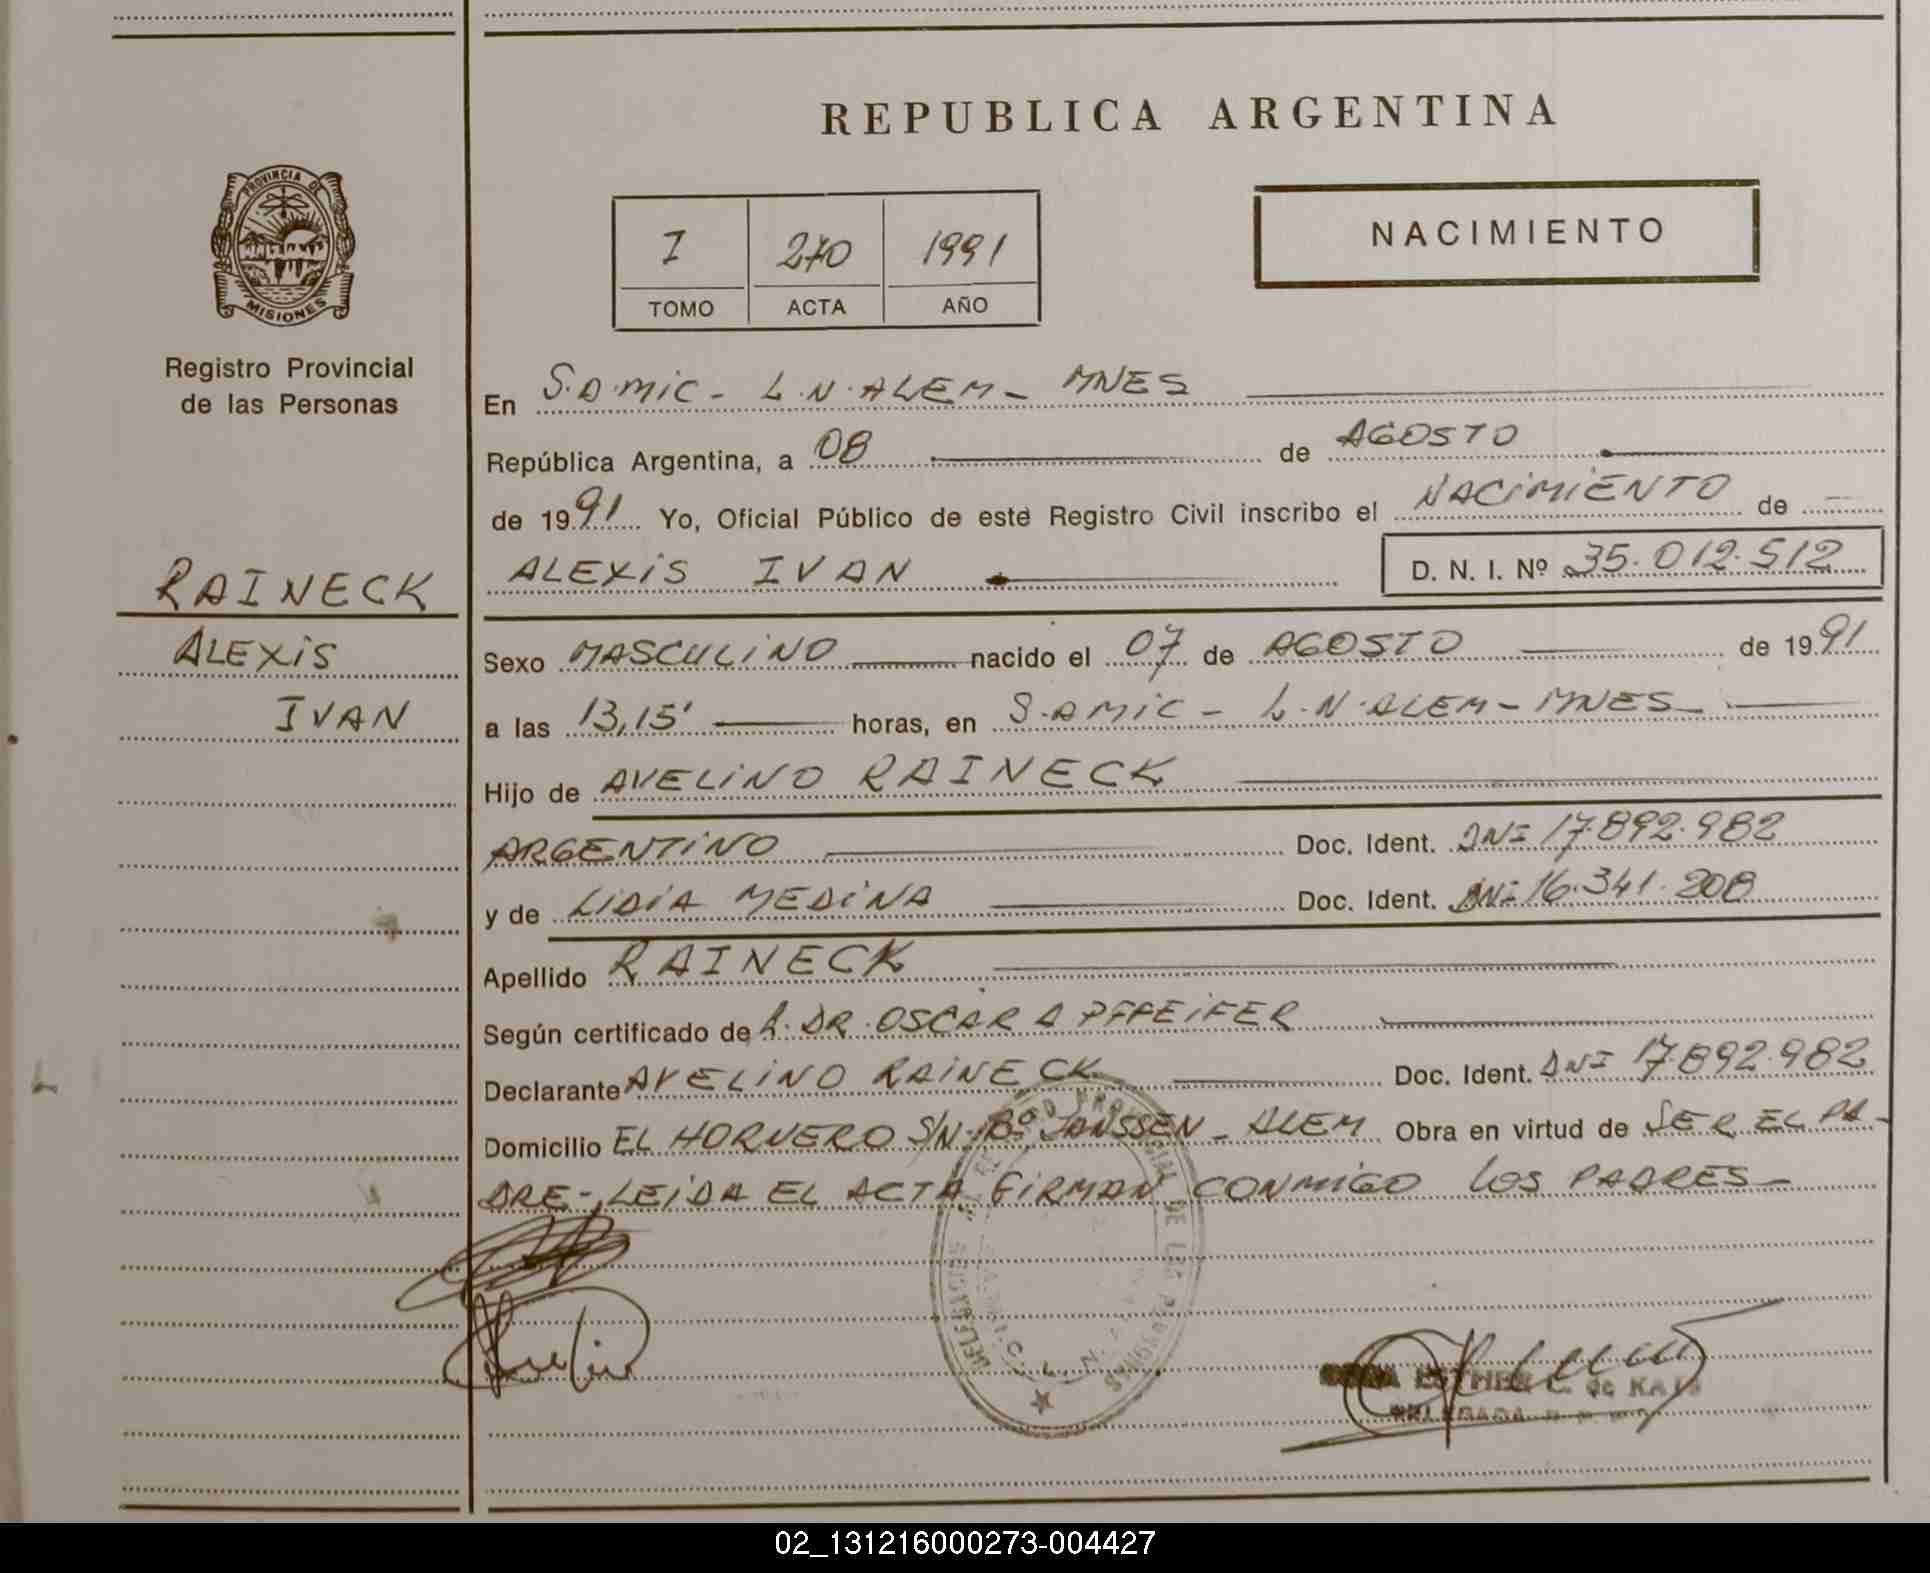 REPUBLICA ARGENTINA
PROVINCIA DE
MISIONES
Registro Provincial
de las Personas
RAINECK
ALEXIS
IVAN
I 270 1991
TOMO ACTA AÑO
NACIMIENTO
En S.A.MIC- L.N.ALEM- MNES
República Argentina, a 08 de AGOSTO
de 1991 Yo, Oficial Público de este Registro Civil inscribo el NACIMIENTO de
ALEXIS IVAN D. N. I. Nº 35.012.512
Sexo MASCULINO nacido el 07 de AGOSTO de 1991
a las 13,15' horas, en S.AMIC- L.N.ALEM-MNES-
Hijo de AVELINO RAINECK
ARGENTINO Doc. Ident. DNI 17.892.982
y de LIDIA MEDINA Doc. Ident. DNI 16.341.208
Apellido RAINECK
Según certificado de DR. OSCAR A PFFEIFER
Declarante AVELINO RAINECK Doc. Ident. DNI 17.892.982
Domicilio EL HORNERO S/N-Bº JANSSEN- ALEM Obra en virtud de SER EL PA-
DRE-LEIDA EL ACTA FIRMAN CONMIGO LOS PADRES-
ESTHER
DELEGADA
02_131216000273-004427